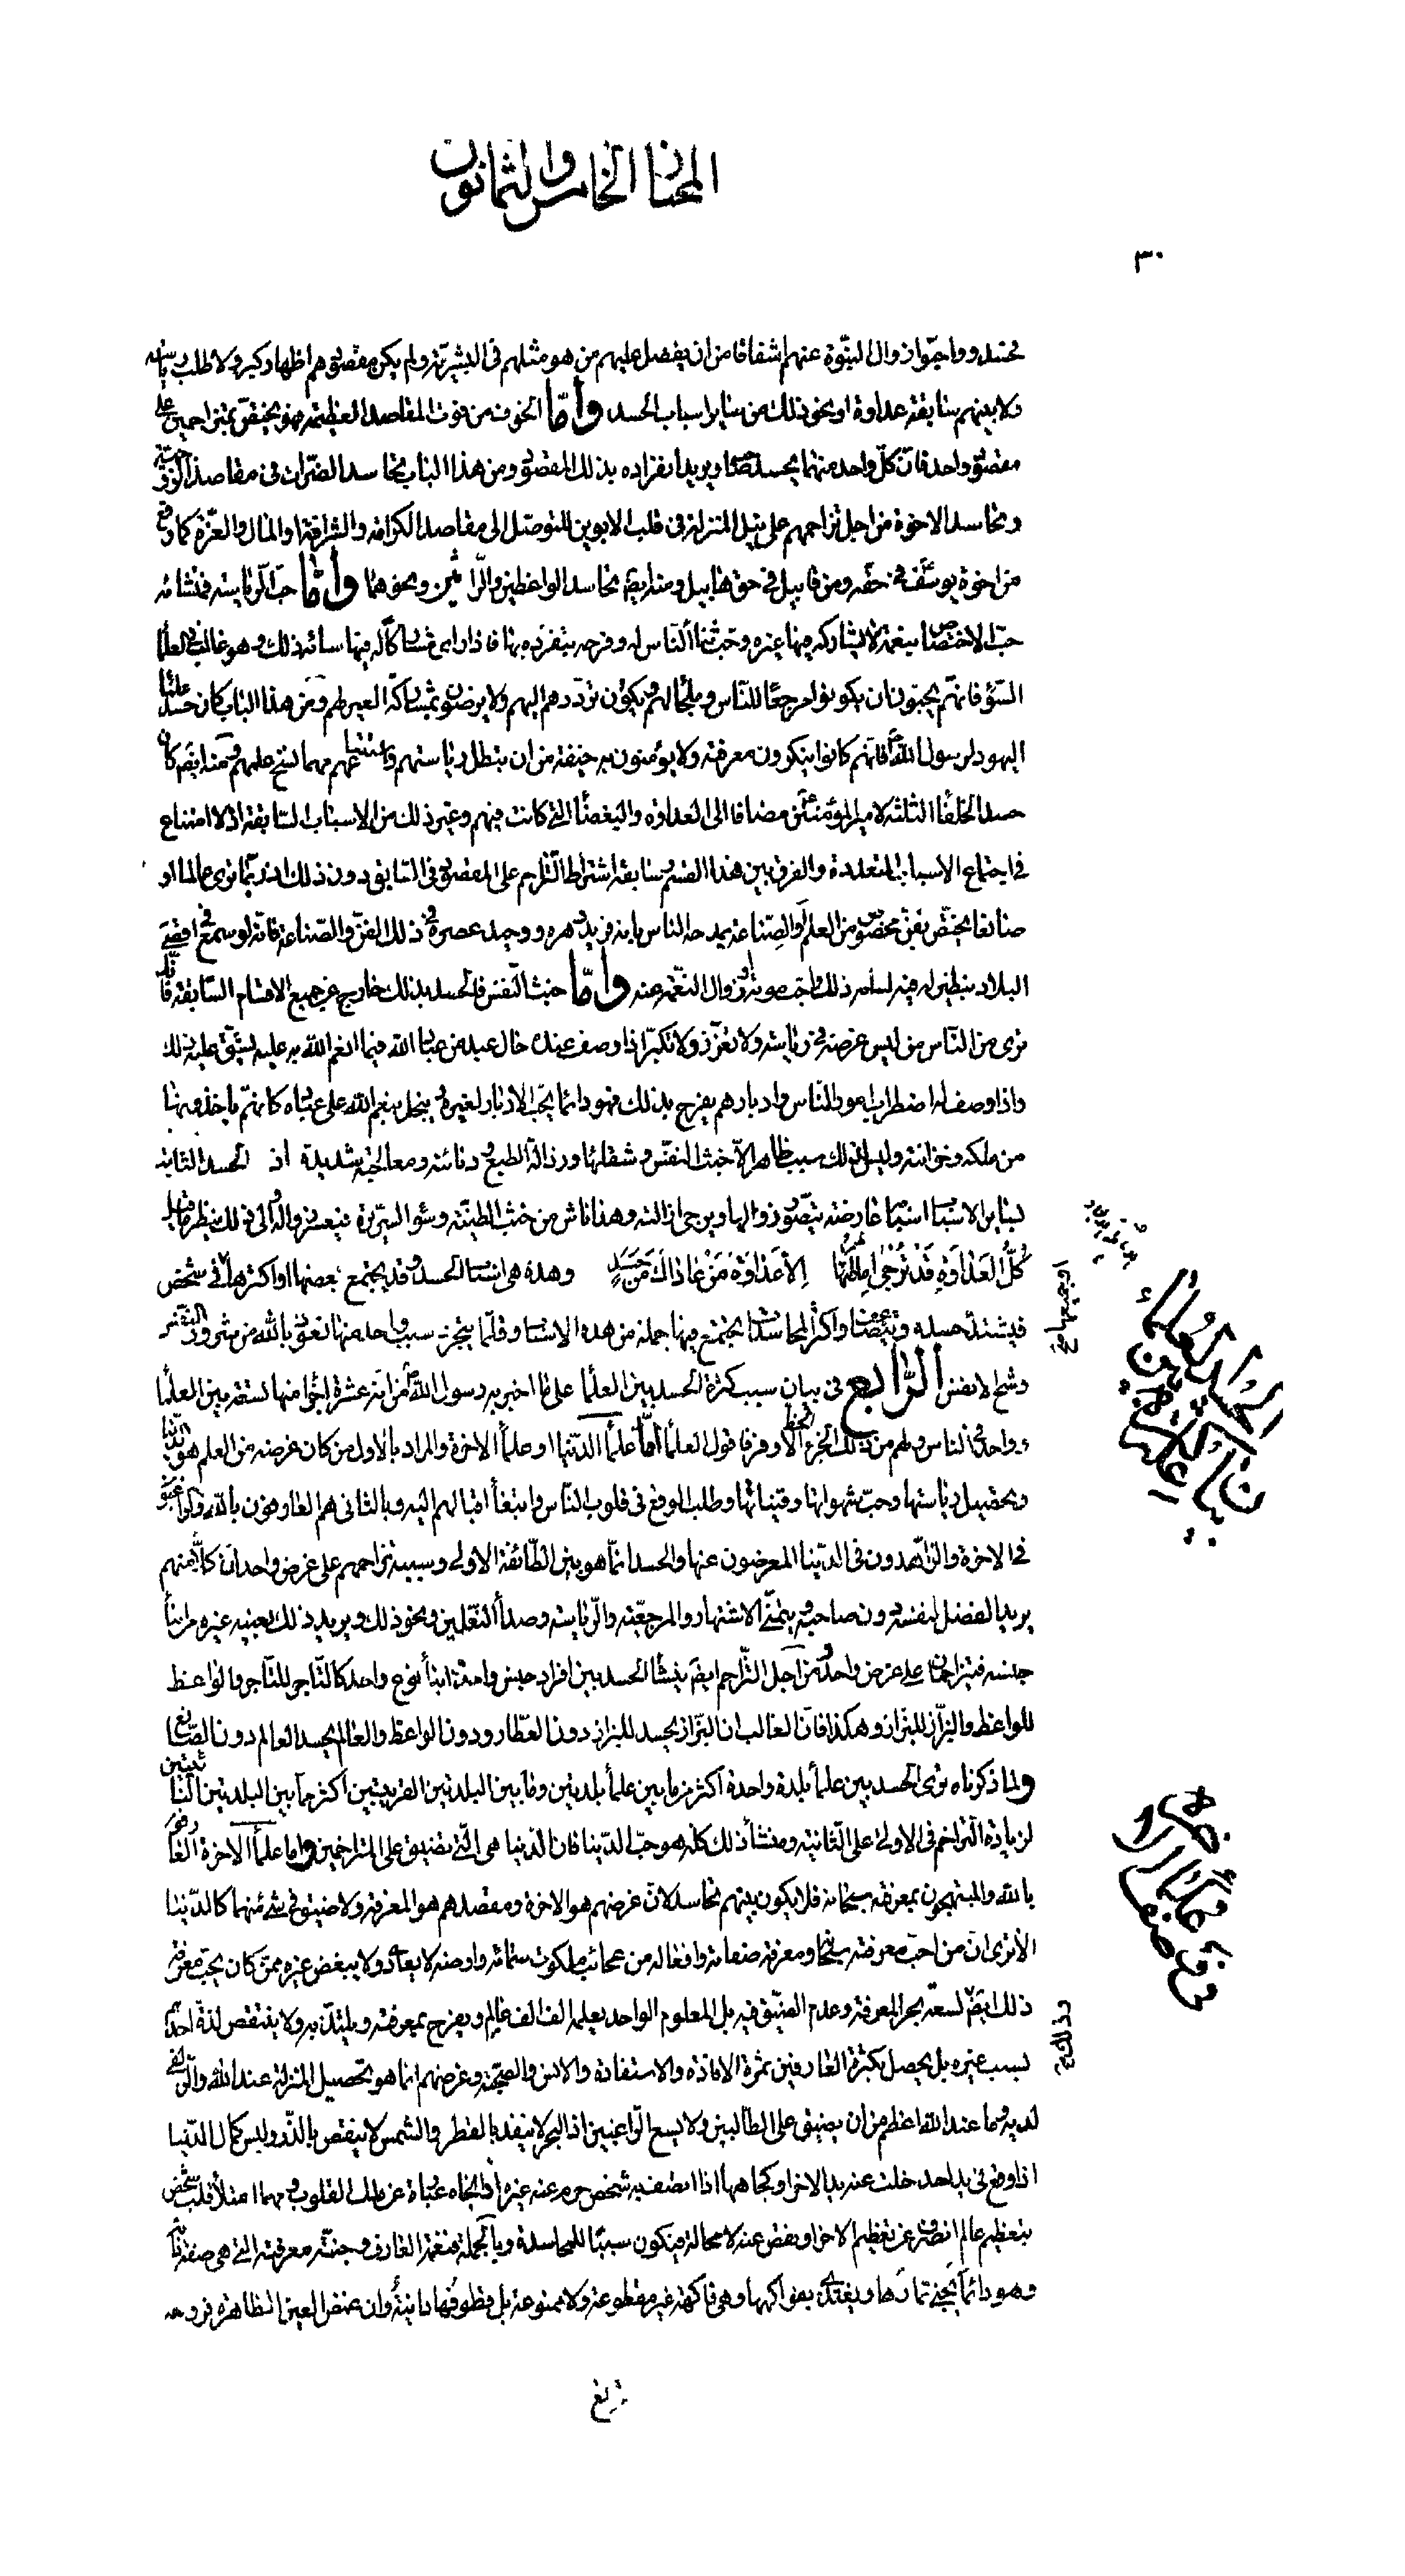 المختار الخامس والثمانون
٣٠
فحسدوا واحبّوا زوال النبوّة عنهم اشفاقا من ان يفضل عليهم من هو مثلهم فى البشريّة ولم يكن مقصودهم اظهار كبر ولا طلب رياسة
ولا بينهم سابقة عداوة او نحو ذلك من ساير اسباب الحسد وأمّا الخوف من فوت المقاصد العظيمة فهو يختصّ بمتزاحمين على
مقصود واحد فانّ كلّ واحد منهما يحسد صاحبه ويريد انفراده بذلك المقصود ومن هذا الباب تحاسد الضرّات فى مقاصد الزوجيّة
وتحاسد الاخوة من اجل تزاحمهم على نيل المنزلة فى قلب الابوين للتوصّل الى مقاصد الكرامة والشرافة او المال والعزّة كما وقع
من اخوة يوسف فى حقّه ومن قابيل فى حق هابيل ومنه ايضا تحاسد الواعظين والرّاثين ونحوهما وأمّا حبّ الرّياسة فمنشائه
حبّ الاختصاص بنعمة لا يشاركه فيها غيره وحبّ ثناء النّاس له وفرحه بتفرّده بها فاذا راى مشاركا له فيها سائه ذلك وهو غالب فى العلماء
السّوء فانّهم يحبّون ان يكونوا مرجعا للنّاس وملجأ لهم ويكون تردّدهم اليهم ولا يرضون بمشاركة الغير لهم ومن هذا الباب كان حسد علماء
اليهود لرسول الله فانّهم كانوا ينكرون معرفته ولا يؤمنون به خيفة من ان يبطل رياستهم واستتباعهم مهما نسخ علمهم ومنه ايضا كان
حسد الخلفاء الثلثة لامير المؤمنين مضافا الى العداوة والبغضاء التى كانت فيهم وغير ذلك من الاسباب السّابقة اذ لا امتناع
فى اجتماع الاسباب المتعددة والفرق بين هذا القسم وسابقه اشتراط التّزاحم على المقصود فى السّابق دون ذلك اذ ربّما ترى عالما او
صانعا يختصّ بفنّ مخصوص من العلم والصّناعة يمدحه الناس بانه فريد دهره ووحيد عصره فى ذلك الفنّ والصّناعة فانّه لو سمع فى اقصى
البلاد بنظير له فيه لسائه ذلك واحبّ موته او زوال النّعمة عنه وأمّا خبث النّفس فالحسد بذلك خارج عن جميع الاقسام السّابقة فانك
ترى من النّاس من ليس غرضه فى رياسة ولا تعزّز ولا تكبّر اذا وصف عنده حال عبد من عباد الله فيما انعم الله به عليه يشقّ عليه ذلك
واذا وصف له اضطراب امور النّاس وادبارهم يفرح بذلك فهو دائما يحبّ الادبار لغيره ويبخل بنعم الله على عباده كانهم ياخذونها
من ملكه وخزانته وليس لذلك سبب ظاهر الّا خبث النفس وشقائها ورذالة الطبع ودنائته ومعالجته شديدة اذ الحسد الثابت
بساير الاسباب اسبابها عارضة يتصوّر زوالها ويرجى ازالته وهذا ناش من خبث الطينة وسوء السّريرة فيعسر زواله والى ذلك ينظر ما قيل
كُلُّ العَداوَةِ قَدْ تُرْجٰى اِماطَتُها اِلاّ عَداوَة مَنْ عاداكَ مِن حَسَدٍ وهذه هى اسباب الحسد وقد يجتمع بعضها او اكثرها او جميعها فى شخص
فيشتدّ حسده ويتضاعف واكثر المحاسدات يجتمع فيها جملة من هذه الاسباب وقلّما يتجرّد سبب واحد منها نعوذ بالله من شرور النفس
وشحّ الانفس الرّابع فى بيان سبب كثرة الحسد بين العلماء على ما اخبر به رسول الله من انه عشرة اجزاء منها تسعة بين العلماء
وواحد فى الناس ولهم من ذلك الجزء الحظ الاوفر فاقول العلماء امّا علماء الدّنيا او علماء الاخرة والمراد بالاول من كان غرضه من العلم هو الدّنيا
وتحصيل رياستها وحبّ شهواتها وقنياتها وطلب الوقع فى قلوب النّاس وابتغاء اقبالهم اليه وبالثانى هم العارفون بالله والراغبون
فى الاخرة والزاهدون فى الدّنيا المعرضون عنها والحسد انّما هو بين الطّائفة الاولى وسببه تزاحمهم على غرض واحد لان كلاّ منهم
يريد الفضل لنفسه دون صاحبه ويتمنّى الاشتهار والمرجعيّة والرّياسة وصداء النّعلين ونحو ذلك ويريد ذلك بعينه غيره من ابناء
جنسه فيتزاحمان على غرض واحد ومن اجل التّزاحم ايضا ينشأ الحسد بين افراد جنس واحد وابناء نوع واحد كالتّاجر للتّاجر والواعظ
للواعظ والبزّاز للبزّاز وهكذا فانّ الغالب ان البزّاز يحسد للبزاز دون العطّار ودون الواعظ والعالم يحسد العالم دون الصّانع
ولما ذكرناه ترى الحسد بين علماء بلدة واحدة اكثر من ما بين علماء بلدتين وما بين البلدتين القريبتين اكثر مما بين البلدتين النّائيتين
لزيادة التزاحم فى الاولى على الثّانية ومنشأ ذلك كله هو حبّ الدّنيا فان الدّنيا هى الّتى تضيق على المتزاحمين واما علماء الاخرة العارفون
بالله والمبتهجون بمعرفته سبحانه فلا يكون بينهم تحاسد لان غرضهم هو الاخرة ومقصدهم هو المعرفة ولا ضيق فى شئ منهما كالدّنيا
الا ترى انّ من احبّ معرفته سبحانه ومعرفة صفاته وافعاله من عجائب ملكوت سمائه وارضه لا يعاد ولا يبغض غيره ممن كان يحبّ معرفة
ذلك ايضا وذلك لسعة بحر المعرفة وعدم الضّيق فيه بل المعلوم الواحد يعلمه الف الف عالم ويفرح بمعرفته ويلتذّ به ولا ينتقص لذّة احد
بسبب غيره بل يحصل بكثرة العارفين ثمرة الافادة والاستفادة والانس والصحبة وغرضهم انما هو تحصيل المنزلة عند الله والزلفى
لديه وما عند الله اعظم من ان يضيق على الطالبين ولا يسع الرّاغبين اذ البحر لا ينفد بالقطر والشمس لا ينقص بالذّر وليس كمال الدّنيا
اذا وقع فى يد احد خلت عنه يد الاخر او كجاهها اذا اتصف به شخص حرم عنه غيره اذ الجاه عبارة عن ملك القلوب ومهما امتلأ قلب شخص
بتعظيم عالم انصرف عن تعظيم الاخر او نقص عنه لا محالة فيكون سببًا للمحاسدة وبالجملة فنعمة العارف وجنّته معرفته التى هى صفة ذاته
وهو دائما يجنى ثمارها ويغتذى بفواكهها وهى فاكهة غير مقطوعة ولا ممنوعة بل قطوفها دانية وان غمض العين الظاهرة فروحه